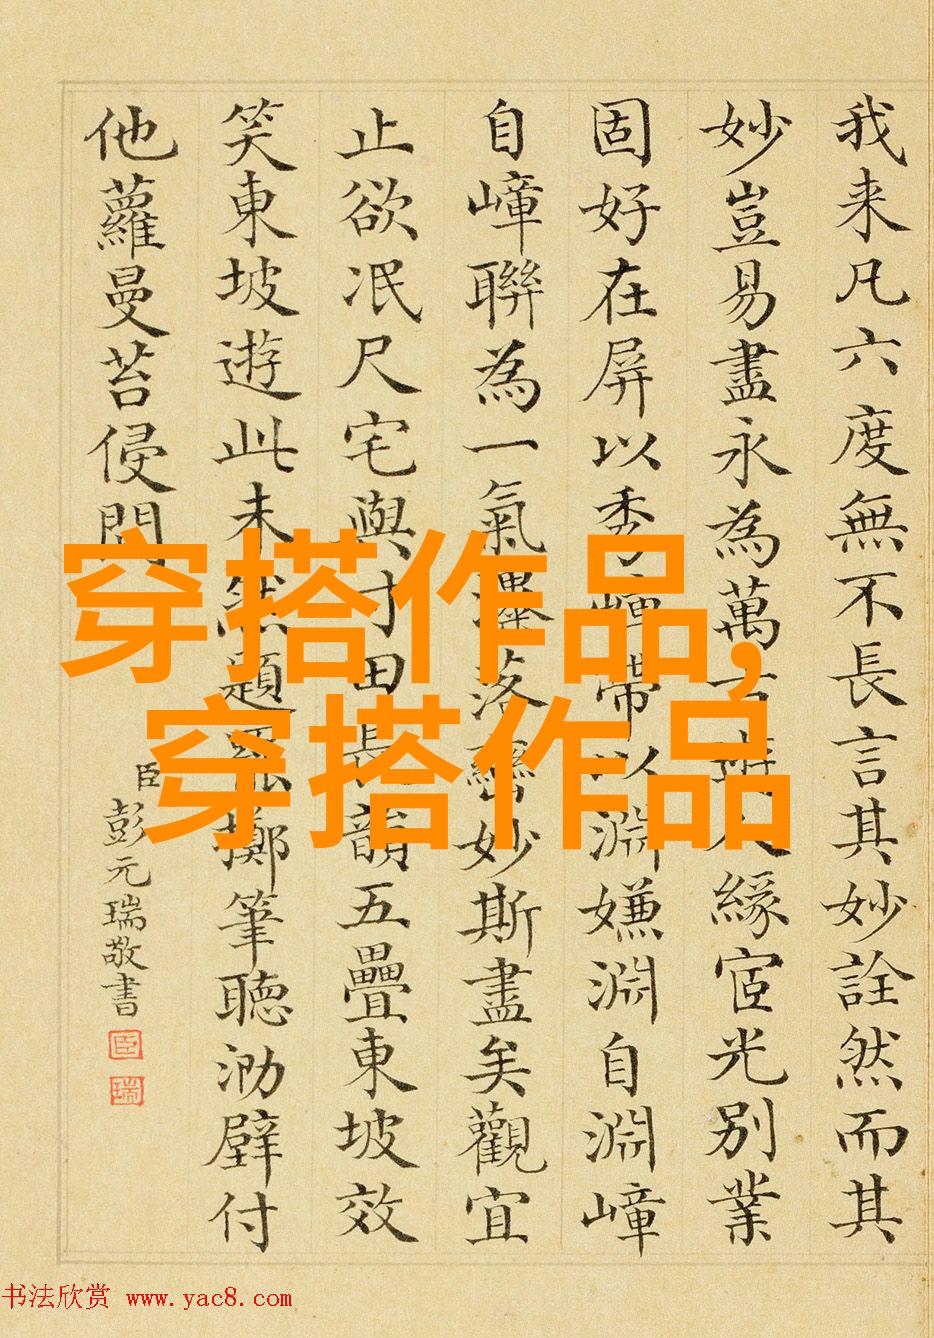 我来凡六度無不長言其妙詮然而其
妙豈易盡永為萬古人緣宧光別業
固好在屏以秀嶂帶以淵嫌淵自淵嶂
自嶂聯為一氣瀑落妙斯盡矣觀宜
止欲泯尺宅與寸田長韻五疊東坡效
笑東坡遊此未然題罷擲筆聽泐壁付
他蘿曼苔侵閒
臣彭元瑞敬書
臣
瑞
穿搭作品,
穿搭作品
书法欣赏 www.yac8.com